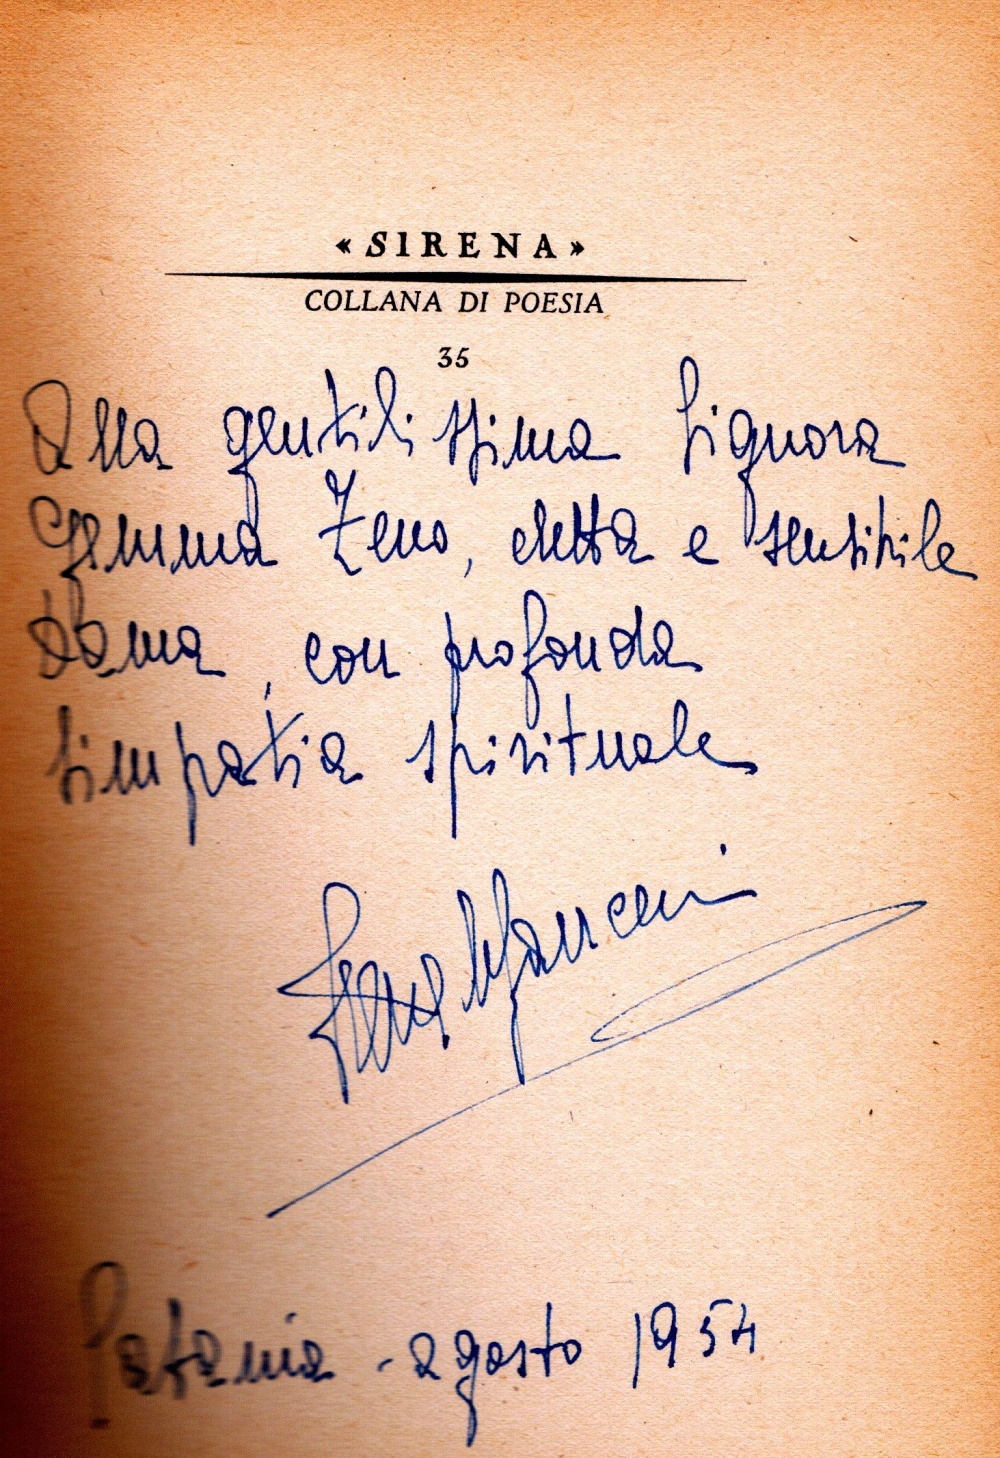 « SIRENA »
COLLANA DI POESIA
35
Alla gentilissima Signora
Gemma Zeno, eletta e sensibile
Dama, con profonda
simpatia spirituale
Catania - agosto 1954